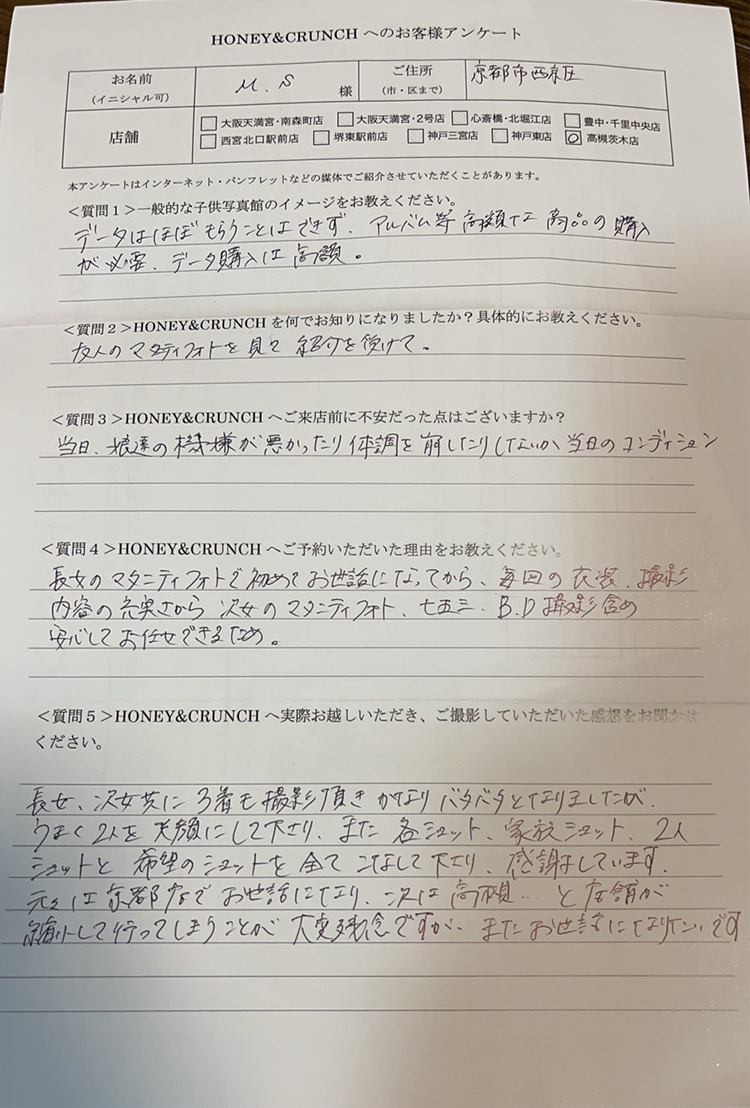 HONEY&CRUNCH へのお客様アンケート
お名前
(イニシャル可)
M.S
様
ご住所
(市・区まで)
京都市西京区
店舗
大阪天満宮・南森町店 大阪天満宮・2号店 心斎橋・北堀江店 豊中・千里中央店
西宮北口駅前店 堺東駅前店 神戸三宮店 神戸東店 高槻茨木店
本アンケートはインターネット・パンフレットなどの媒体でご紹介させていただくことがあります。
<質問1>一般的な子供写真館のイメージをお教えください。
データはほぼもらうことはできず、アルバム等高額な商品の購入
が必要、データ購入は高額。
<質問2>HONEY&CRUNCH を何でお知りになりましたか?具体的にお教えください。
友人のマタニティフォトを見て紹介を受けて。
<質問3>HONEY&CRUNCH へご来店前に不安だった点はございますか?
当日、娘達の機嫌が悪かったり体調を崩したりしないか、当日のコンディション
<質問4>HONEY&CRUNCH へご予約いただいた理由をお教えください。
長女のマタニティフォトで初めてお世話になってから、毎回の衣装、撮影
内容の充実さから次女のマタニティフォト、七五三、B.D撮影含め
安心してお任せできるため。
<質問5>HONEY&CRUNCH へ実際お越しいただき、ご撮影していただいた感想をお聞かせ
ください。
長女、次女共に3着も撮影頂きかなりバタバタとなりましたが、
うまく2人を笑顔にして下さり、また各ショット、家族ショット、2人
ショットと希望のショットを全てこなして下さり、感謝しています。
元々は京都店でお世話になり、次は高槻…と店舗が
縮小して行ってしまうことが大変残念ですが、またお世話になりたいです